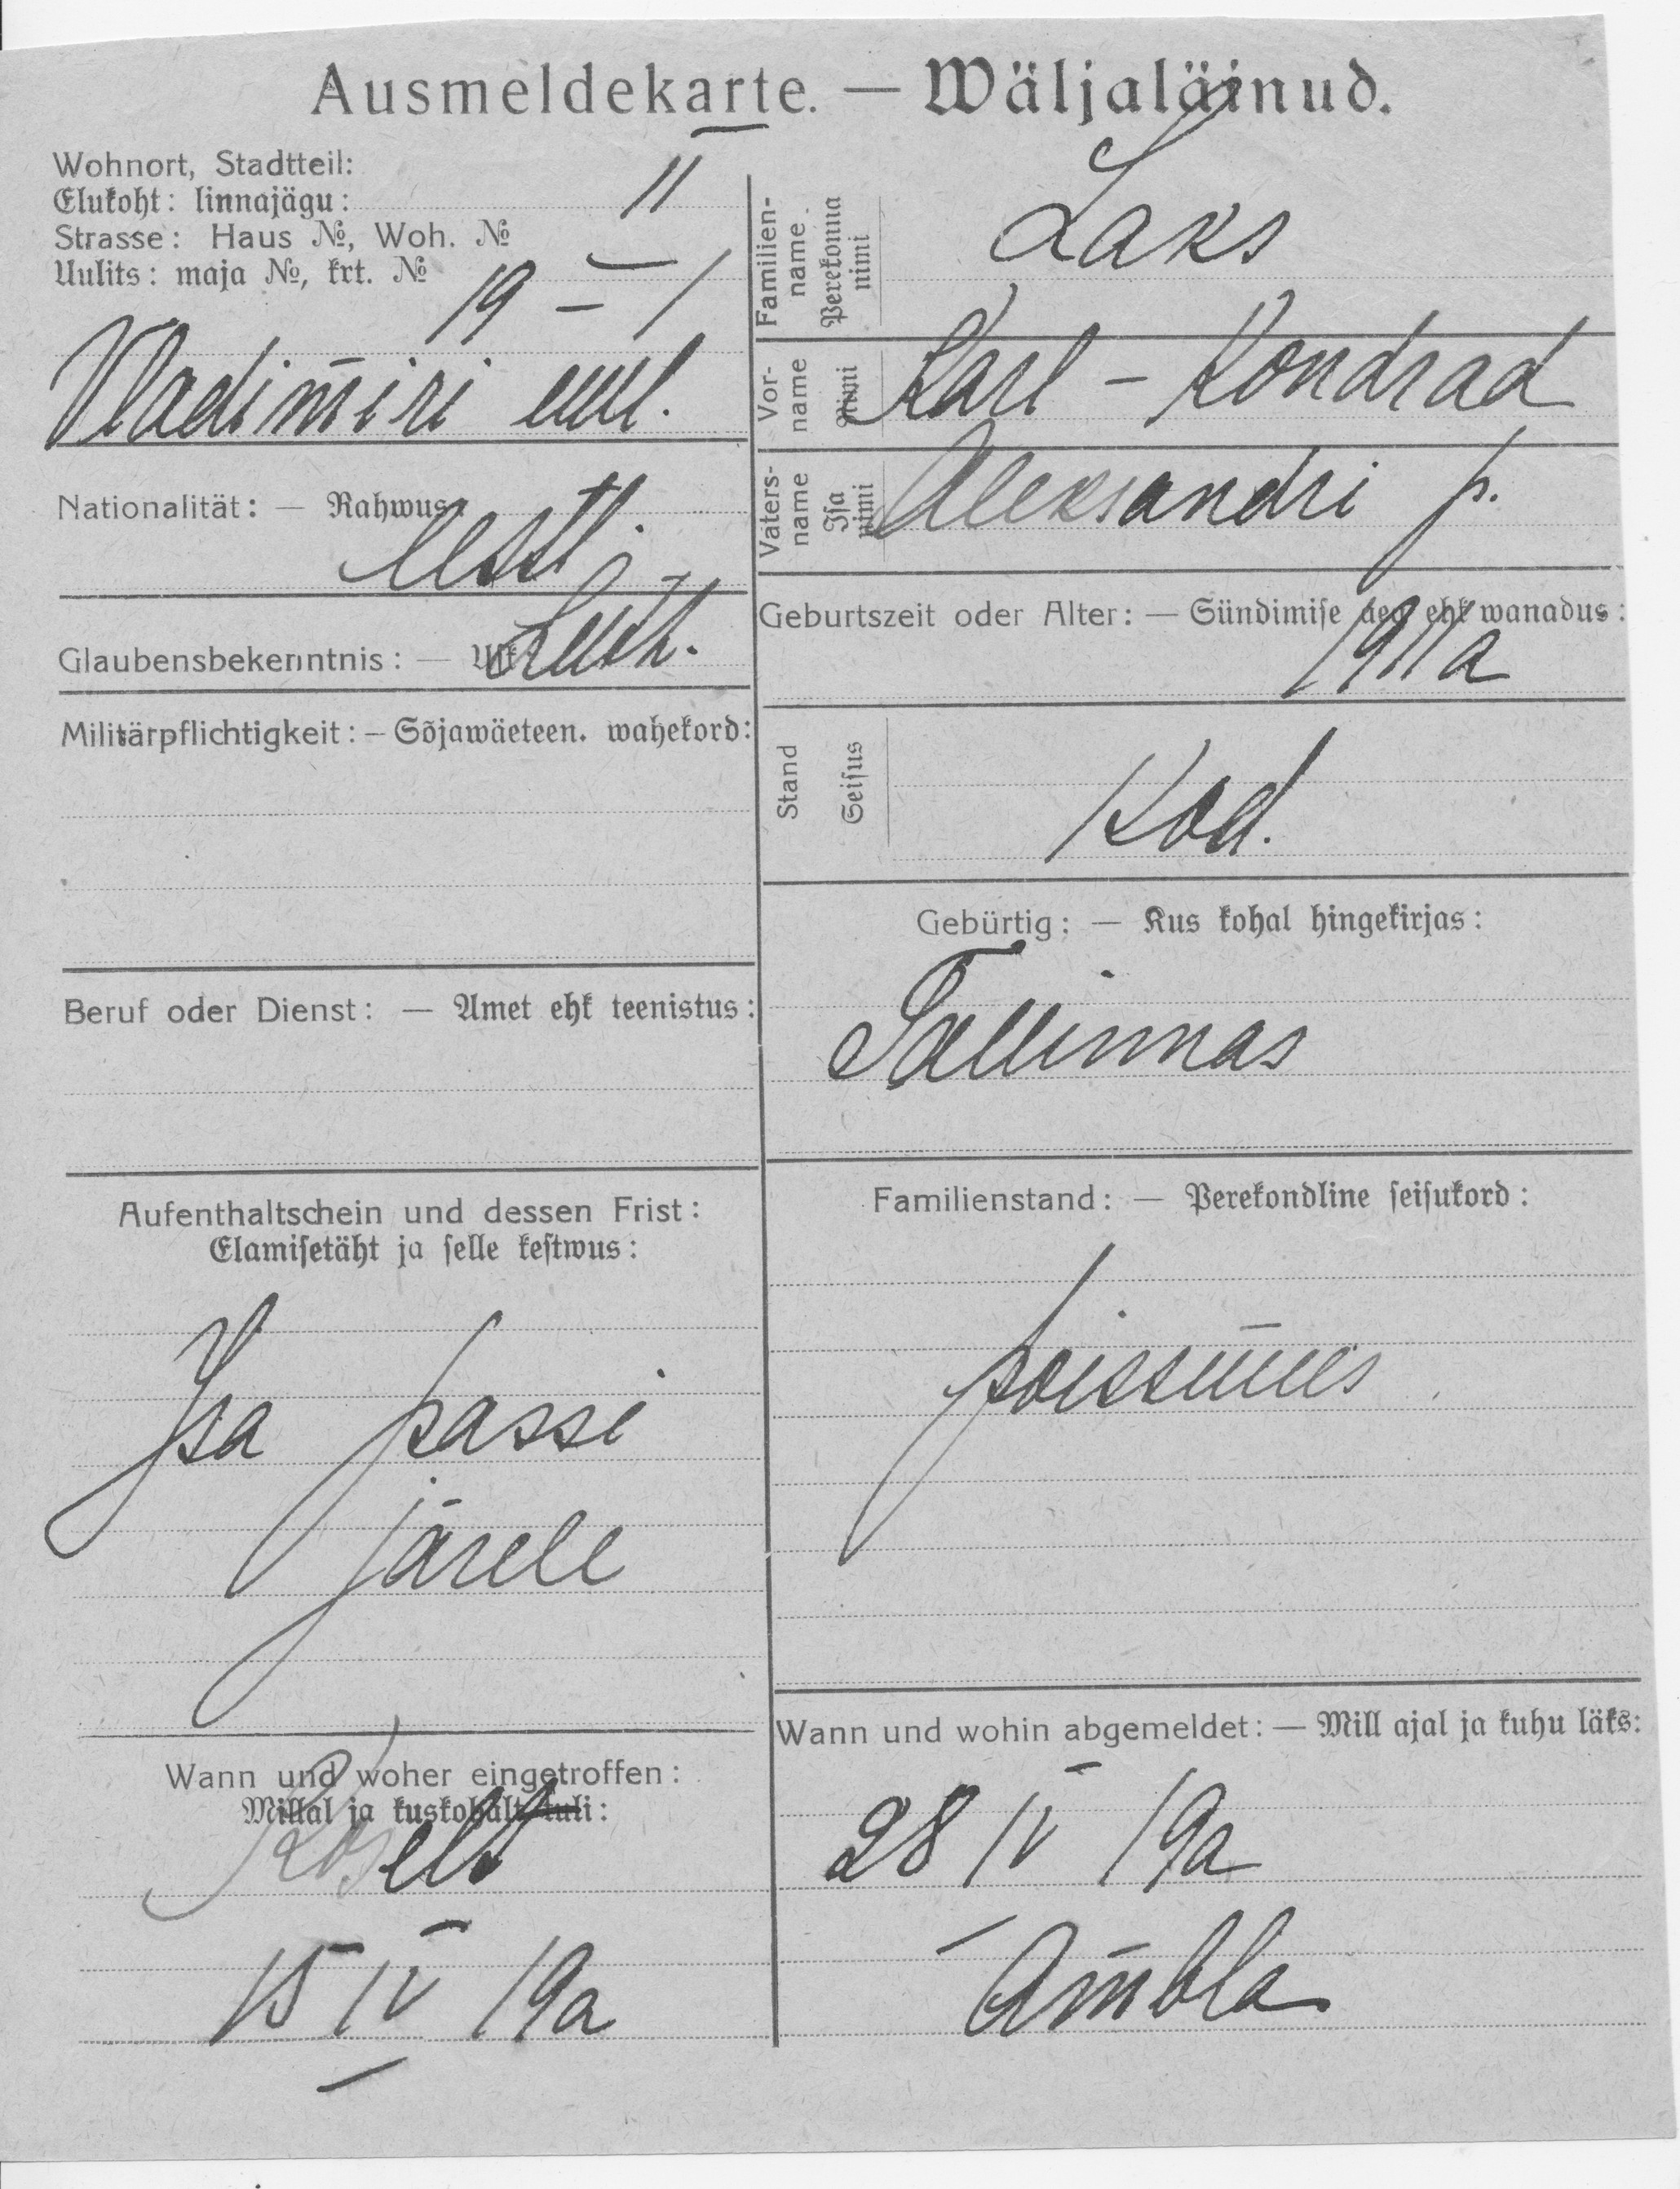 Ausmeldekarte. — Wäljaläinud.
Wohnort, Stadtteil:
Elukoht: linnajägu: II
Strasse: Haus №, Woh. №
Uulits: maja №, krt. № 19 – 1
Vladimiri uul.
Nationalität: — Rahwus:
Eesti
Glaubensbekenntnis: — Usk
Luth.
Militärpflichtigkeit: — Sõjawäeteen. wahekord:
Beruf oder Dienst: — Amet ehk teenistus:
Aufenthaltschein und dessen Frist:
Elamisetäht ja selle kestwus:
Isa passi
järele
Wann und woher eingetroffen:
Millal ja kuskohalt tuli:
Koselt
15 IV 19a
Familien-
name
Perekonna
nimi
Laks
Vor-
name
Nimi
Karl – Kondrad
Vaters-
name
Isa
nimi
Aleksandri p.
Geburtszeit oder Alter: — Sündimise aeg ehk wanadus:
1911 a
Stand
Seisus
Kod.
Gebürtig: — Kus kohal hingekirjas:
Tallinnas
Familienstand: — Perekondline seisukord:
poissmees
Wann und wohin abgemeldet: — Mill ajal ja kuhu läks:
28 IV 19a
Ambla